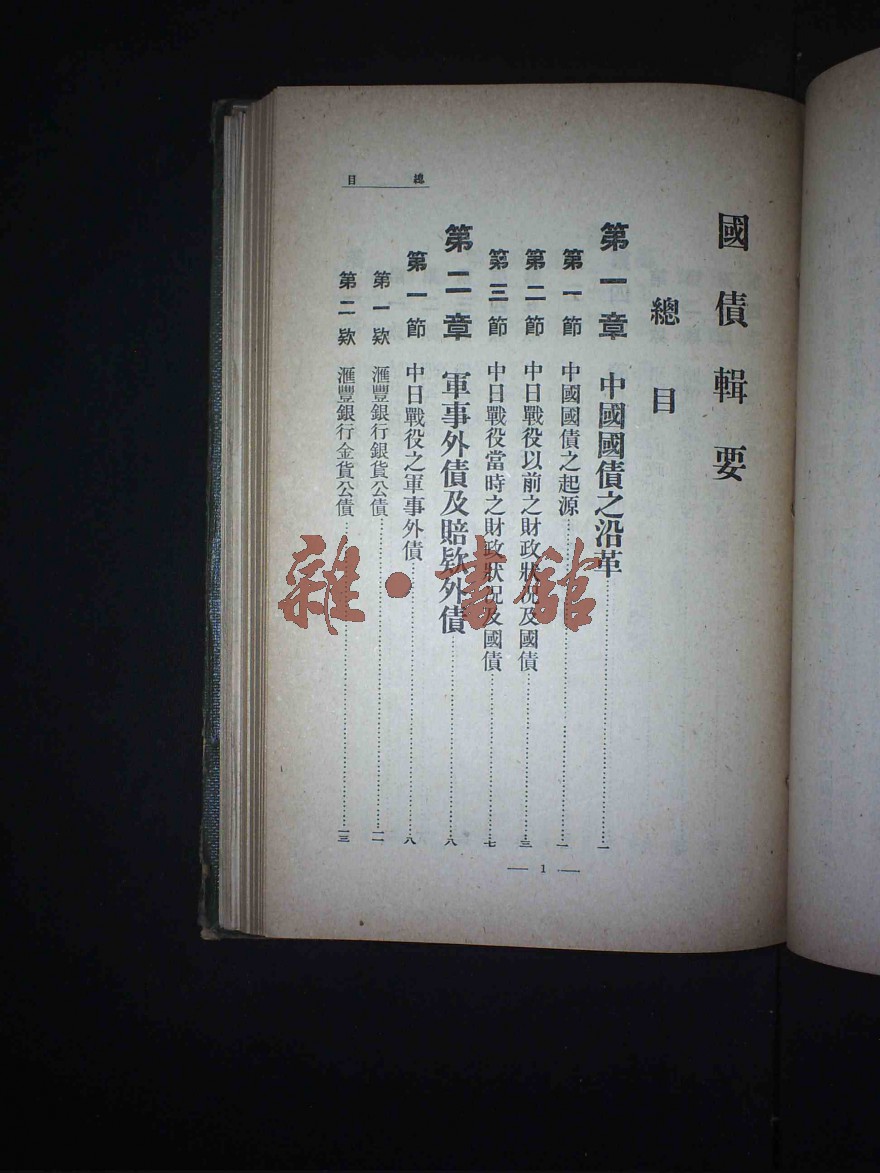 國債輯要
總目
第一章 中國國債之沿革……一
第一節 中國國債之起源……一
第二節 中日戰役以前之財政狀況及國債……三
第三節 中日戰役當時之財政狀況及國債……七
第二章 軍事外債及賠欵外債……八
第一節 中日戰役之軍事外債……八
第一欵 滙豐銀行銀貨公債……一一
第二欵 滙豐銀行金貨公債……一三
總目
— 1 —
雜·書館